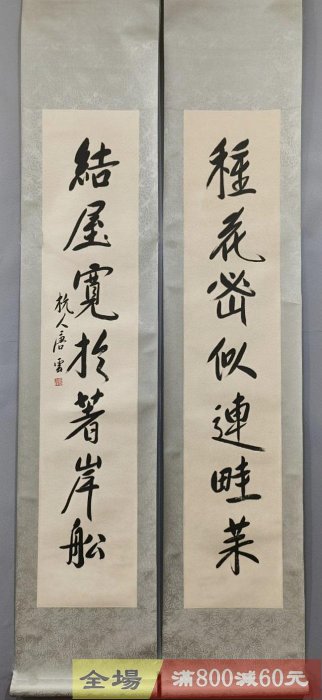 種花密似連畦菜
結屋寬於著岸船
杭人唐雲
全場 滿800減60元